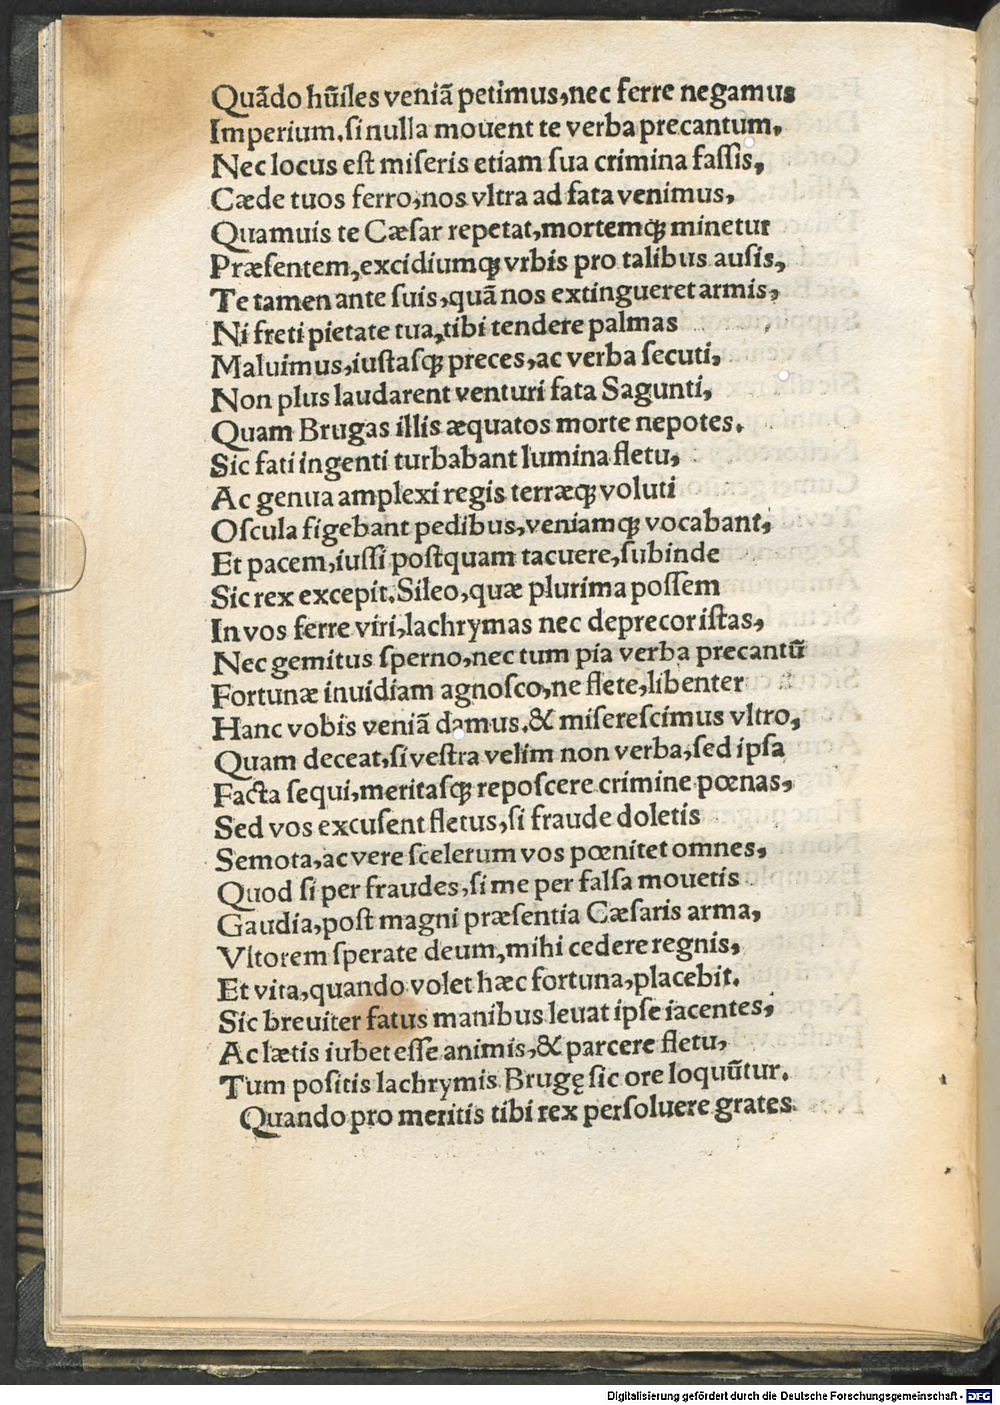 Quãdo hũiles veniã petimus,nec ferre negamus
Imperium,si nulla mouent te verba precantum,
Nec locus est miseris etiam sua crimina fassis,
Cæde tuos ferro,nos vltra ad fata venimus,
Quamuis te Cæsar repetat,mortemqꝫ minetur
Præsentem,excidiumqꝫ vrbis pro talibus ausis,
Te tamen ante suis,quã nos extingueret armis,
Ni freti pietate tua,tibi tendere palmas
Maluimus,iustasqꝫ preces,ac verba secuti,
Non plus laudarent venturi fata Sagunti,
Quam Brugas illis æquatos morte nepotes.
Sic fati ingenti turbabant lumina fletu,
Ac genua amplexi regis terræqꝫ voluti
Oscula figebant pedibus,veniamqꝫ vocabant,
Et pacem,iussi postquam tacuere,subinde
Sic rex excepit.Sileo,quæ plurima possem
In vos ferre viri,lachrymas nec deprecor istas,
Nec gemitus sperno,nec tum pia verba precantũ
Fortunæ inuidiam agnosco,ne flete,libenter
Hanc vobis veniã damus.& miserescimus vltro,
Quam deceat,si vestra velim non verba,sed ipsa
Facta sequi,meritasqꝫ reposcere crimine pœnas,
Sed vos excusent fletus,si fraude doletis
Semota,ac vere scelerum vos pœnitet omnes,
Quod si per fraudes,si me per falsa mouetis
Gaudia,post magni præsentia Cæsaris arma,
Vltorem sperate deum,mihi cedere regnis,
Et vita,quando volet hæc fortuna,placebit.
Sic breuiter fatus manibus leuat ipse iacentes,
Ac lætis iubet esse animis,& parcere fletu,
Tum positis lachrymis Brugę sic ore loquũtur.
Quando pro meritis tibi rex persoluere grates
Digitalisierung gefördert durch die Deutsche Forschungsgemeinschaft - DFG